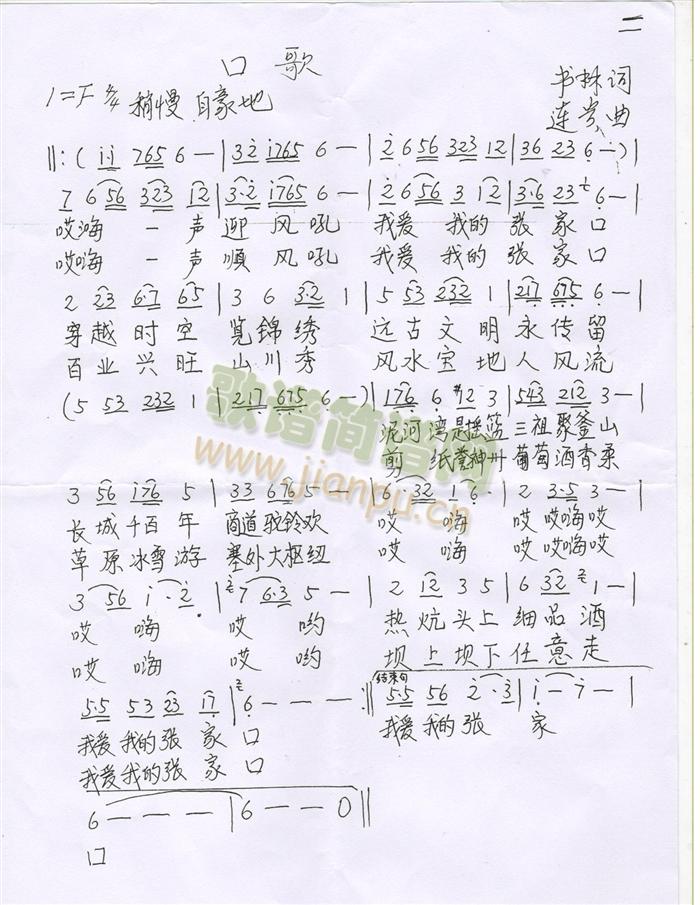 二
口 歌
1=F 4/4 稍慢 自豪地
书林词
连芳曲
‖:( i·i 765 6 — | 32 i765 6 — | 2 6 56 323 12 | 36 23 6 — ) |
7 6 56 323 12 | 3·2 i765 6 — | 2 6 56 3 12 | 3·6 23 6 — |
哎嗨 一 声 迎 风 吼 我爱 我的 张 家 口
哎嗨 一 声 顺 风 吼 我爱 我的 张 家 口
2 23 6·7 65 | 3 6 3·2 1 | 5 53 232 1 | 217 675 6 — |
穿 越 时 空 览 锦 绣 远 古 文 明 永 传 留
百 业 兴 旺 山 川 秀 风 水 宝 地 人 风 流
(5 53 232 1 | 217 675 6 —) | 176 6 #12 3 | 543 212 3 — |
泥河 湾 是摇篮 三祖 聚釜山
剪 纸 誉神州 葡萄酒香柔
3 56 i76 5 | 33 676 5 — | 6 32 1 6· | 2 3·5 3 — |
长 城 千百 年 商道 驼铃欢 哎 嗨 哎 哎嗨哎
草 原 冰雪 游 塞外 大枢纽 哎 嗨 哎 哎嗨哎
3 56 i · 2. | 7 6·3 5 — | 2 12 3 5 | 6 32 1 — |
哎 嗨 哎 哟 热 炕 头 上 细 品 酒
哎 嗨 哎 哟 坝 上 坝 下 任 意 走
5·5 53 23 17 | 6 — — — :‖ 结束句 5·5 56 2 · 3 | i — 7 — |
我爱 我的 张 家 口 我爱 我的 张 家
我爱 我的 张 家 口
6 — — — | 6 — — 0 ‖
口
歌谱简谱网
www.jianpu.cn